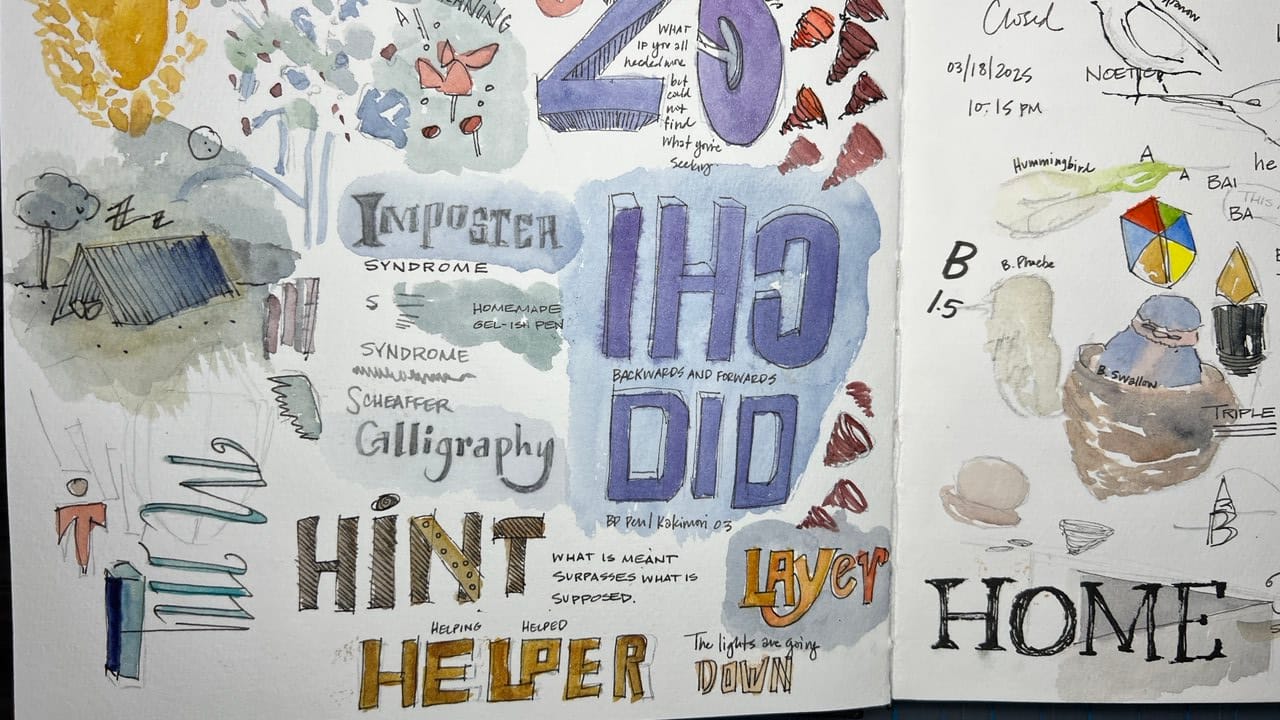 WHAT
IF you all
needed more
but
could
not
find
what you're
seeking.
Z Z Z
IMPOSTER
SYNDROME
S
HOMEMADE
GEL-ISH PEN
SYNDROME
SCHEAFFER
Calligraphy
OHI
BACKWARDS AND FORWARDS
DID
BP Pen / Kakimori 03
HINT
WHAT IS MEANT
SURPASSES WHAT IS
SUPPOSED.
LAyer
HELPING HELPED
HELPER
The lights are going
DOWN
Closed
03/18/2025
10:15 PM
Hummingbird
A
A
BAI
BA
he
THIS
B
1.5
B. Phoebe
B. Swallow
TRIPLE
B
HOME